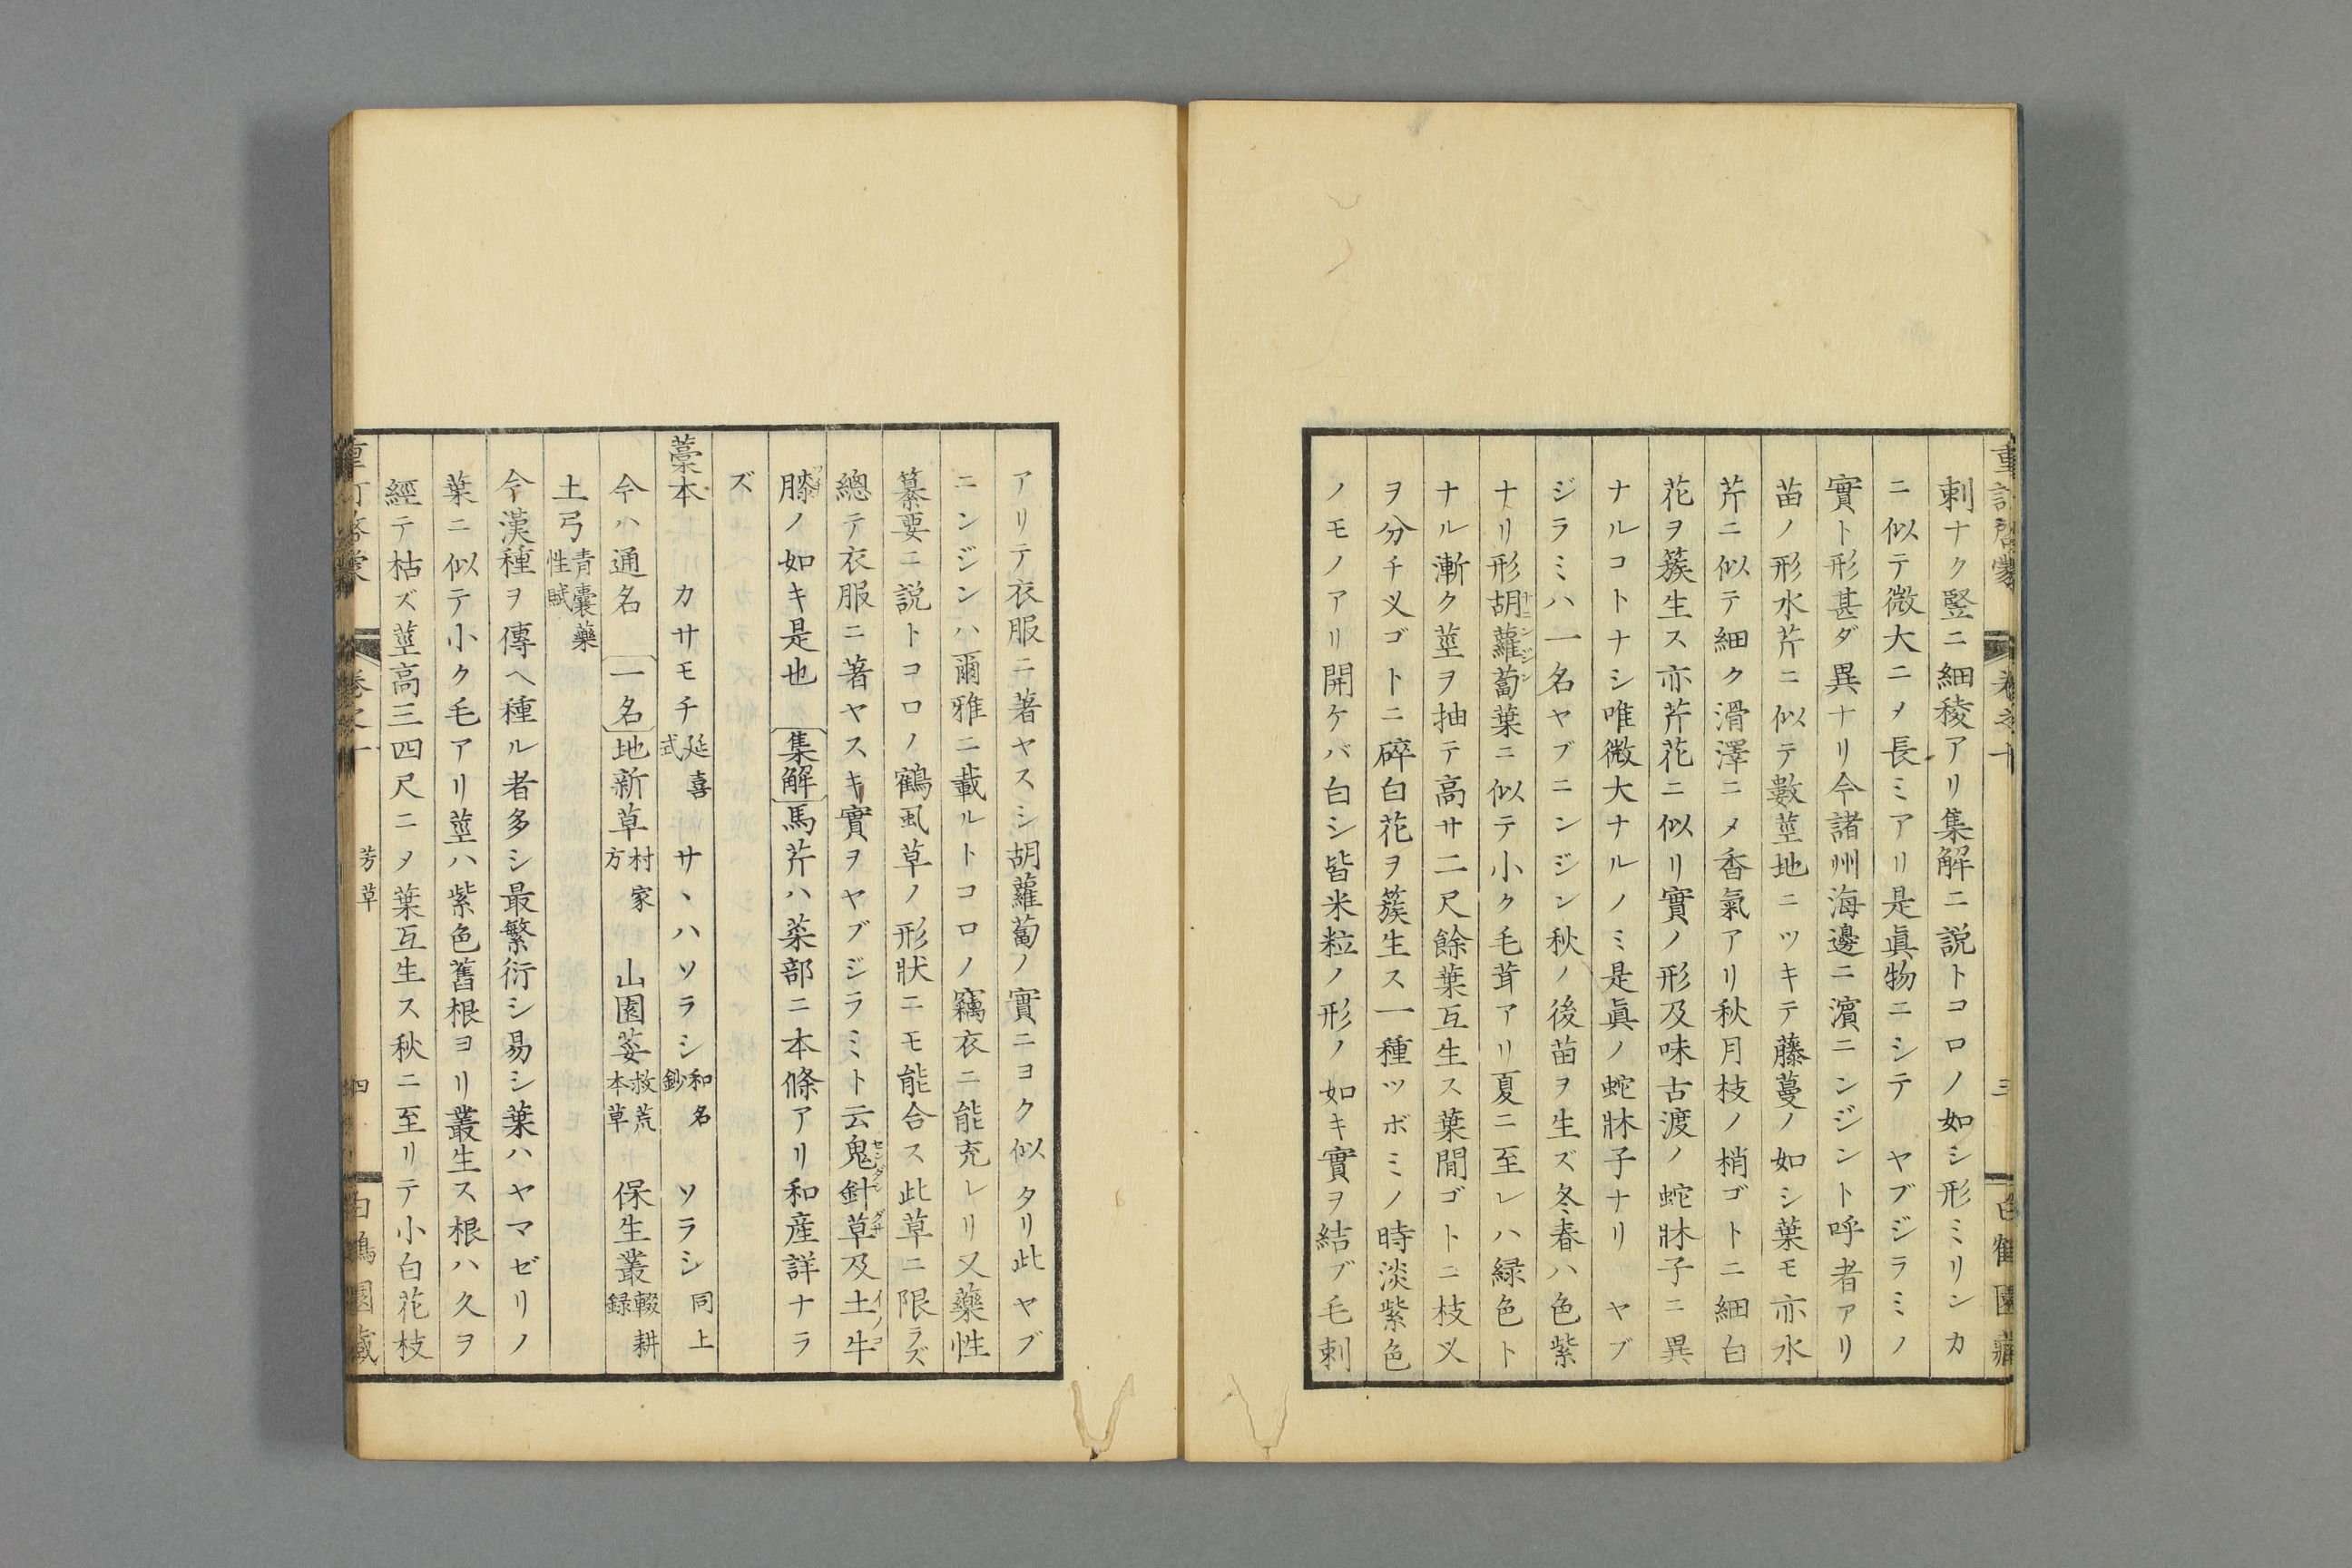 重訂啓蒙 卷之十 三 白鶴園藏
刺ナク竪ニ細稜アリ集解ニ説トコロノ如シ形ミリンカ
ニ似テ微大ニメ長ミアリ是眞物ニシテ ヤブジラミノ
實ト形甚ダ異ナリ今諸州海邊ニ濵ニンジント呼者アリ
苗ノ形水芹ニ似テ數莖地ニツキテ藤蔓ノ如シ葉モ亦水
芹ニ似テ細ク滑澤ニメ香氣アリ秋月枝ノ梢ゴトニ細白
花ヲ簇生ス亦芹花ニ似リ實ノ形及味古渡ノ蛇牀子ニ異
ナルコトナシ唯微大ナルノミ是眞ノ蛇牀子ナリ ヤブ
ジラミハ一名ヤブニンジン秋ノ後苗ヲ生ズ冬春ハ色紫
ナリ形胡蘿蔔ナニンジン葉ニ似テ小ク毛茸アリ夏ニ至レハ緑色ト
ナル漸ク莖ヲ抽テ高サ二尺餘葉互生ス葉間ゴトニ枝乂
ヲ分チ乂ゴトニ碎白花ヲ簇生ス一種ツボミノ時淡紫色
ノモノアリ開ケバ白シ皆米粒ノ形ノ如キ實ヲ結ブ毛刺
アリテ衣服ニ著ヤスシ胡蘿蔔ノ實ニヨク似タリ此ヤブ
ニンジンハ爾雅ニ載ルトコロノ竊衣ニ能充レリ又藥性
纂要ニ説トコロノ鶴虱草ノ形狀ニモ能合ス此草ニ限ラズ
總テ衣服ニ著ヤスキ實ヲヤブジラミト云鬼針草センダングサ及土牛イノコ
膝ノ如キ是也 集解 馬芹ハ菜部ニ本條アリ和産詳ナラ
ズ
藁本 カサモチ延喜式 サヽハソラシ和名鈔 ソラシ同上
今ハ通名 一名 地新草村家方 山園荽救荒本草 保生叢輟耕録
土弓青囊藥性賦
今漢種ヲ傳ヘ種ル者多シ最繁衍シ易シ葉ハヤマゼリノ
葉ニ似テ小ク毛アリ莖ハ紫色舊根ヨリ叢生ス根ハ久ヲ
經テ枯ズ莖高三四尺ニメ葉互生ス秋ニ至リテ小白花枝
重訂啓蒙 卷之十 芳草 四 白鶴園藏